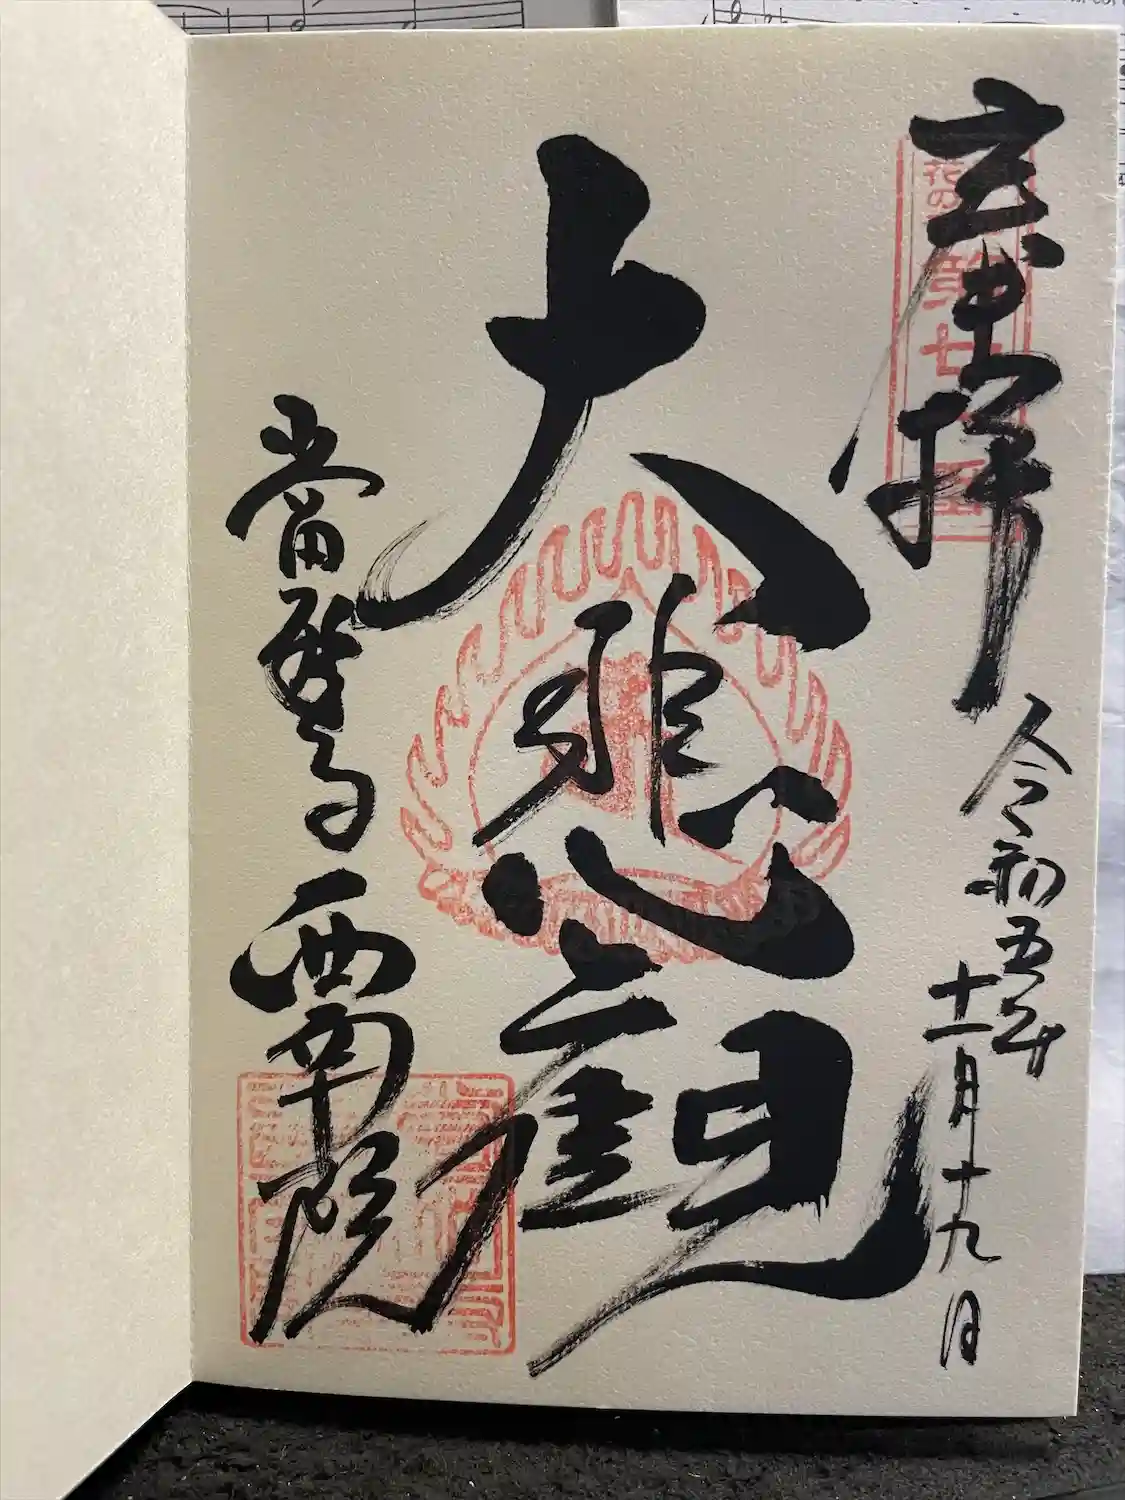 奉拝
花の
第廿
令和五年
十一月十九日
大悲観
當麻寺 西南院